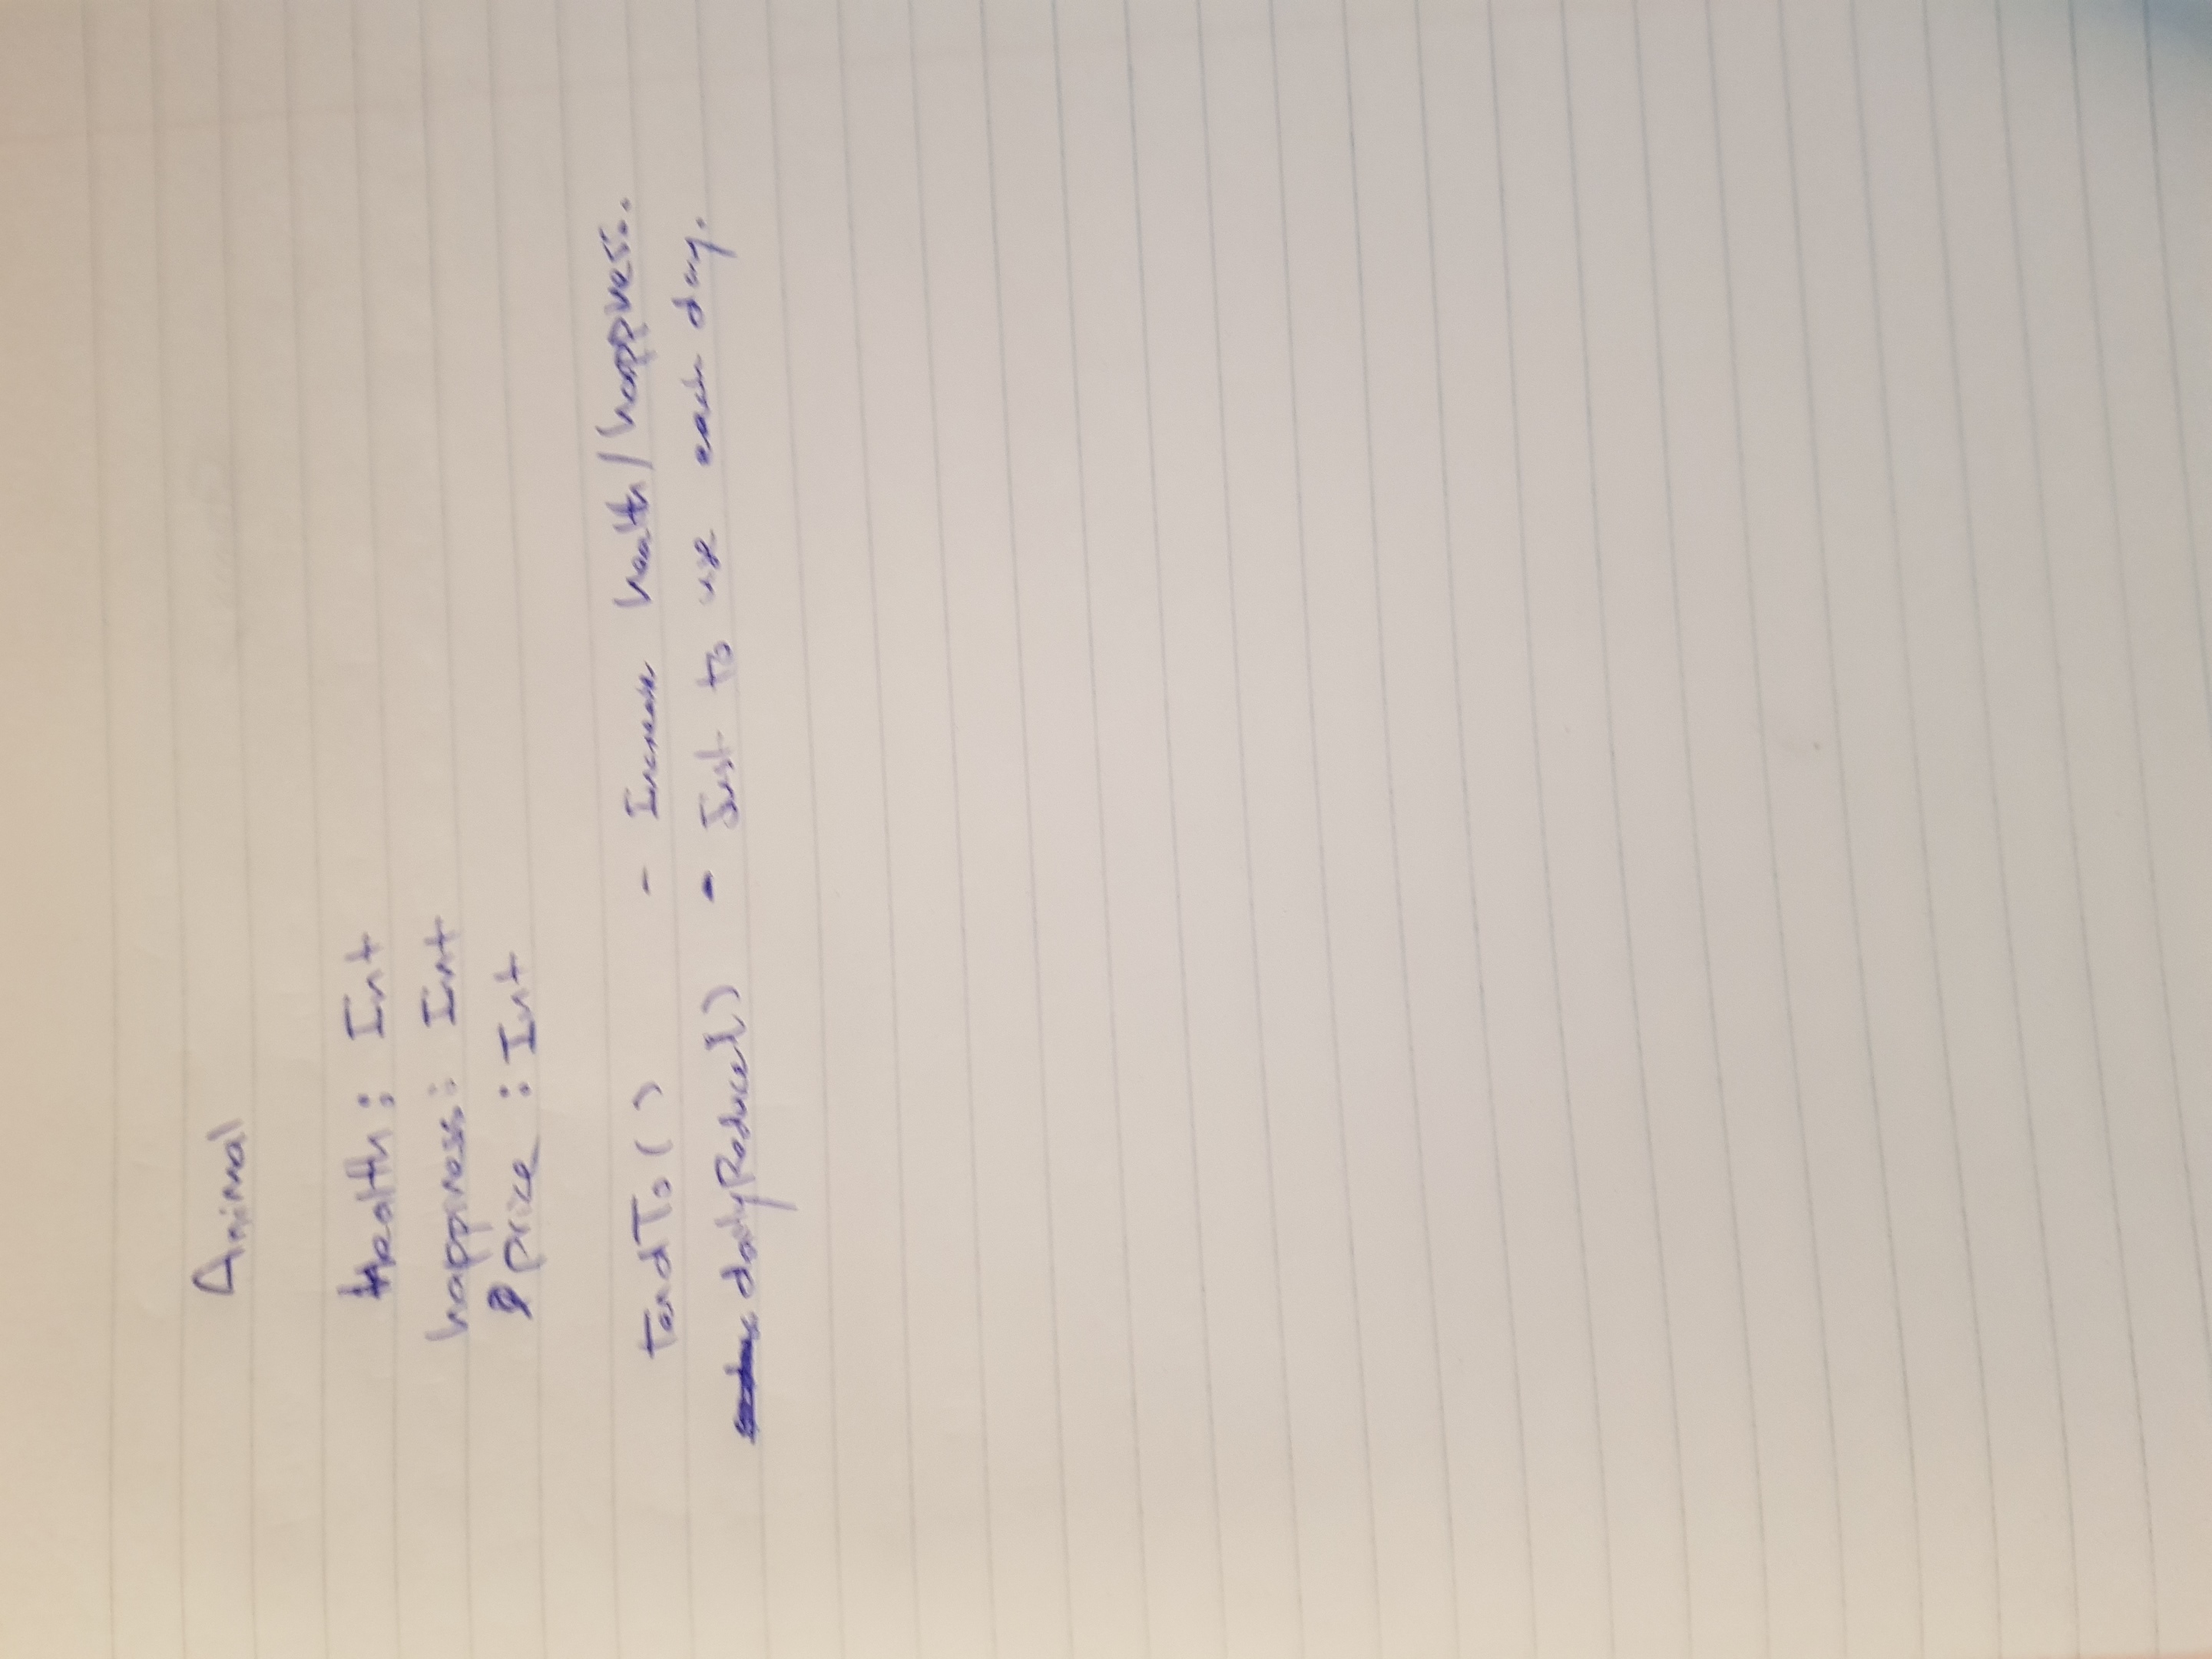 Animal
Health: Int
happiness: Int
price : Int
tendTo() - Increase health/happiness.
dailyReduce() - Just to use each day.